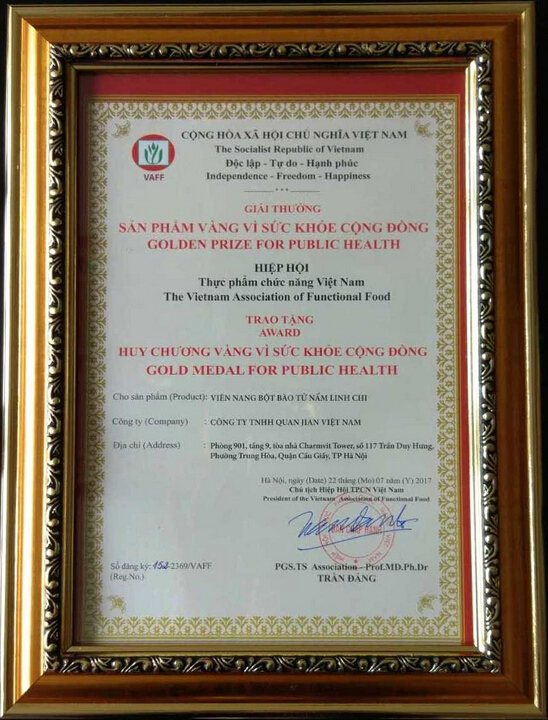 CỘNG HÒA XÃ HỘI CHỦ NGHĨA VIỆT NAM
The Socialist Republic of Vietnam
Độc lập - Tự do - Hạnh phúc
Independence - Freedom - Happiness
VAFF
GIẢI THƯỞNG
SẢN PHẨM VÀNG VÌ SỨC KHỎE CỘNG ĐỒNG
GOLDEN PRIZE FOR PUBLIC HEALTH
HIỆP HỘI
Thực phẩm chức năng Việt Nam
The Vietnam Association of Functional Food
TRAO TẶNG
AWARD
HUY CHƯƠNG VÀNG VÌ SỨC KHỎE CỘNG ĐỒNG
GOLD MEDAL FOR PUBLIC HEALTH
Cho sản phẩm (Product): VIÊN NANG BỘT BÀO TỬ NẤM LINH CHI
Công ty (Company) : CÔNG TY TNHH QUAN JIAN VIỆT NAM
Địa chỉ (Address) : Phòng 901, tầng 9, tòa nhà Charmvit Tower, số 117 Trần Duy Hưng,
Phường Trung Hòa, Quận Cầu Giấy, TP Hà Nội
Hà Nội, ngày (Date) 22 tháng (Mo) 07 năm (Y) 2017
Chủ tịch Hiệp Hội TPCN Việt Nam
President of the Vietnam Association of Functional Food
BAN CHẤP HÀNH
Số đăng ký: 152-2369/VAFF
(Reg.No.)
PGS.TS Association - Prof.MD.Ph.Dr
TRẦN ĐÁNG